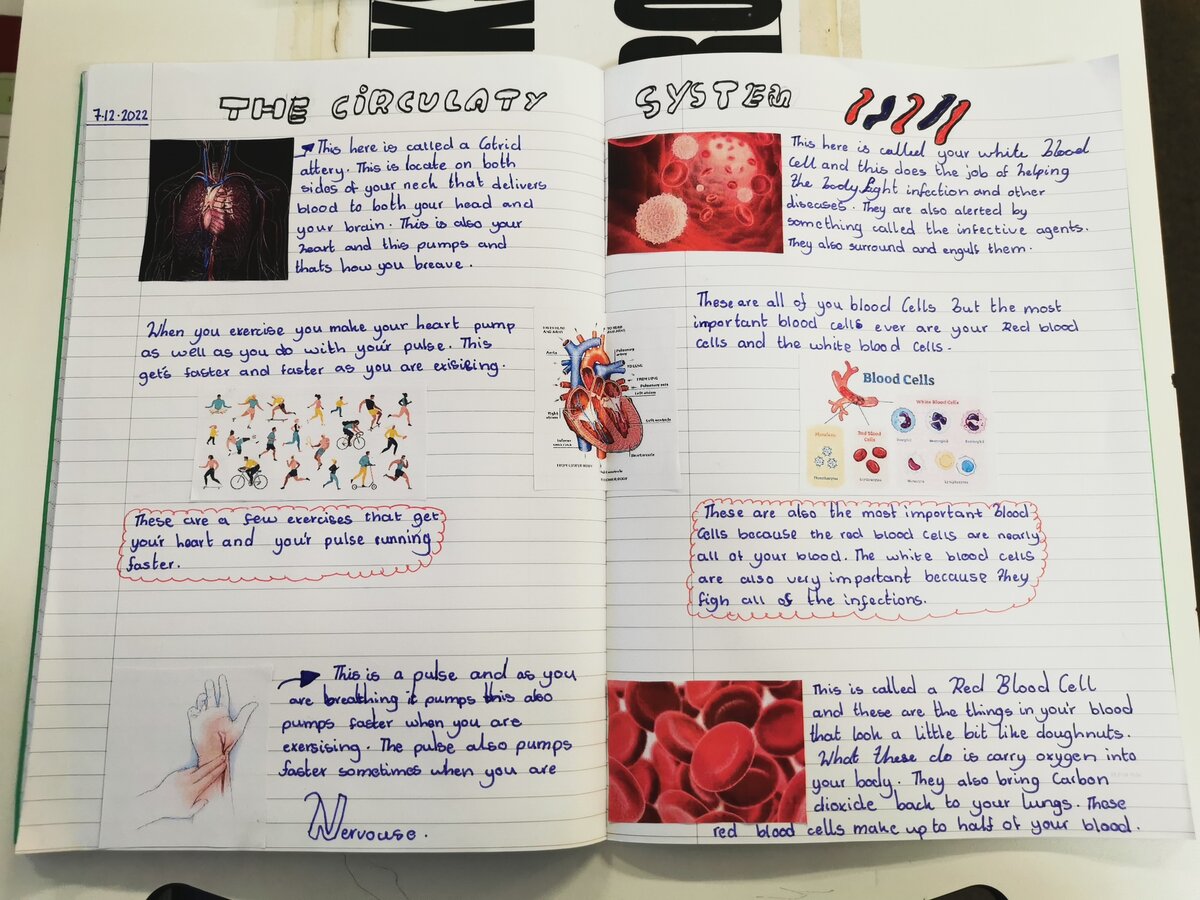 7.12.2022
THE CIRCULATY SYSTEM
This here is called a Cotrid
attery. This is locate on both
sides of your neck that delivers
blood to both your head and
your brain. This is also your
heart and this pumps and
thats how you breave.
When you exercise you make your heart pump
as well as you do with your pulse. This
get's faster and faster as you are exisising.
These are a few exercises that get
your heart and your pulse running
faster.
This is a pulse and as you
are breathing it pumps this also
pumps faster when you are
exersising. The pulse also pumps
faster sometimes when you are
Nervouse.
Aorta
This here is called your white Blood
Cell and this does the job of helping
The body fight infection and other
diseases. They are also alerted by
something called the infective agents.
They also surround and engulf them.
These are all of you blood Cells But the most
important blood cells ever are your Red blood
cells and the white blood cells.
Blood Cells
White Blood Cells
Platelets
Red Blood
Cells
These are also the most important Blood
Cells because the red blood cells are nearly
all of your blood. The white blood cells
are also very important because They
figh all of the infections.
This is called a Red Blood Cell
and these are the things in your blood
that look a little bit like doughnuts.
What these do is carry oxygen into
your body. They also bring Carbon
dioxide back to your lungs. These
red blood cells make up to half of your blood.